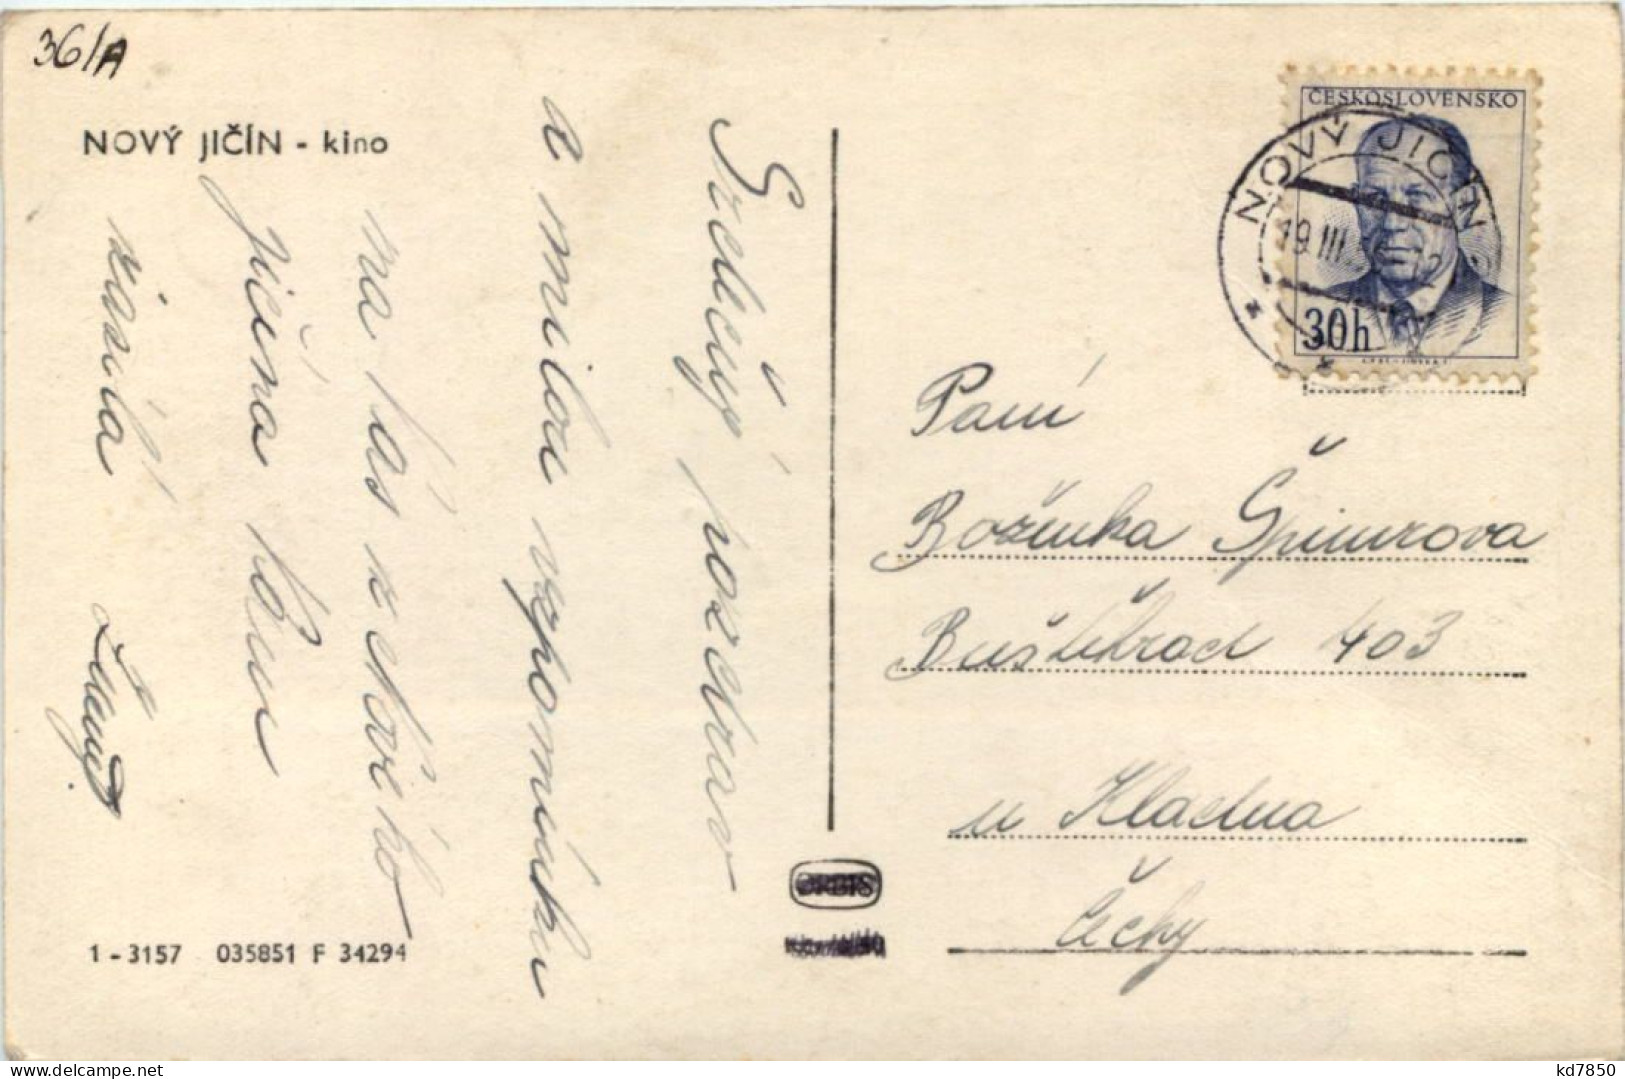 36/A
NOVÝ JIČÍN - kino
Srdečný pozdrav
a milou vzpomínku
na Vás z
Jičína Vám
zasílá
1 - 3157 035851 F 34294
ORBIS
ČESKOSLOVENSKO
NOVÝ JIČÍN
19.III.
30h
Paní
Boženka Špinirova
Buštěhrad 403
u Kladna
Čechy
kd7850